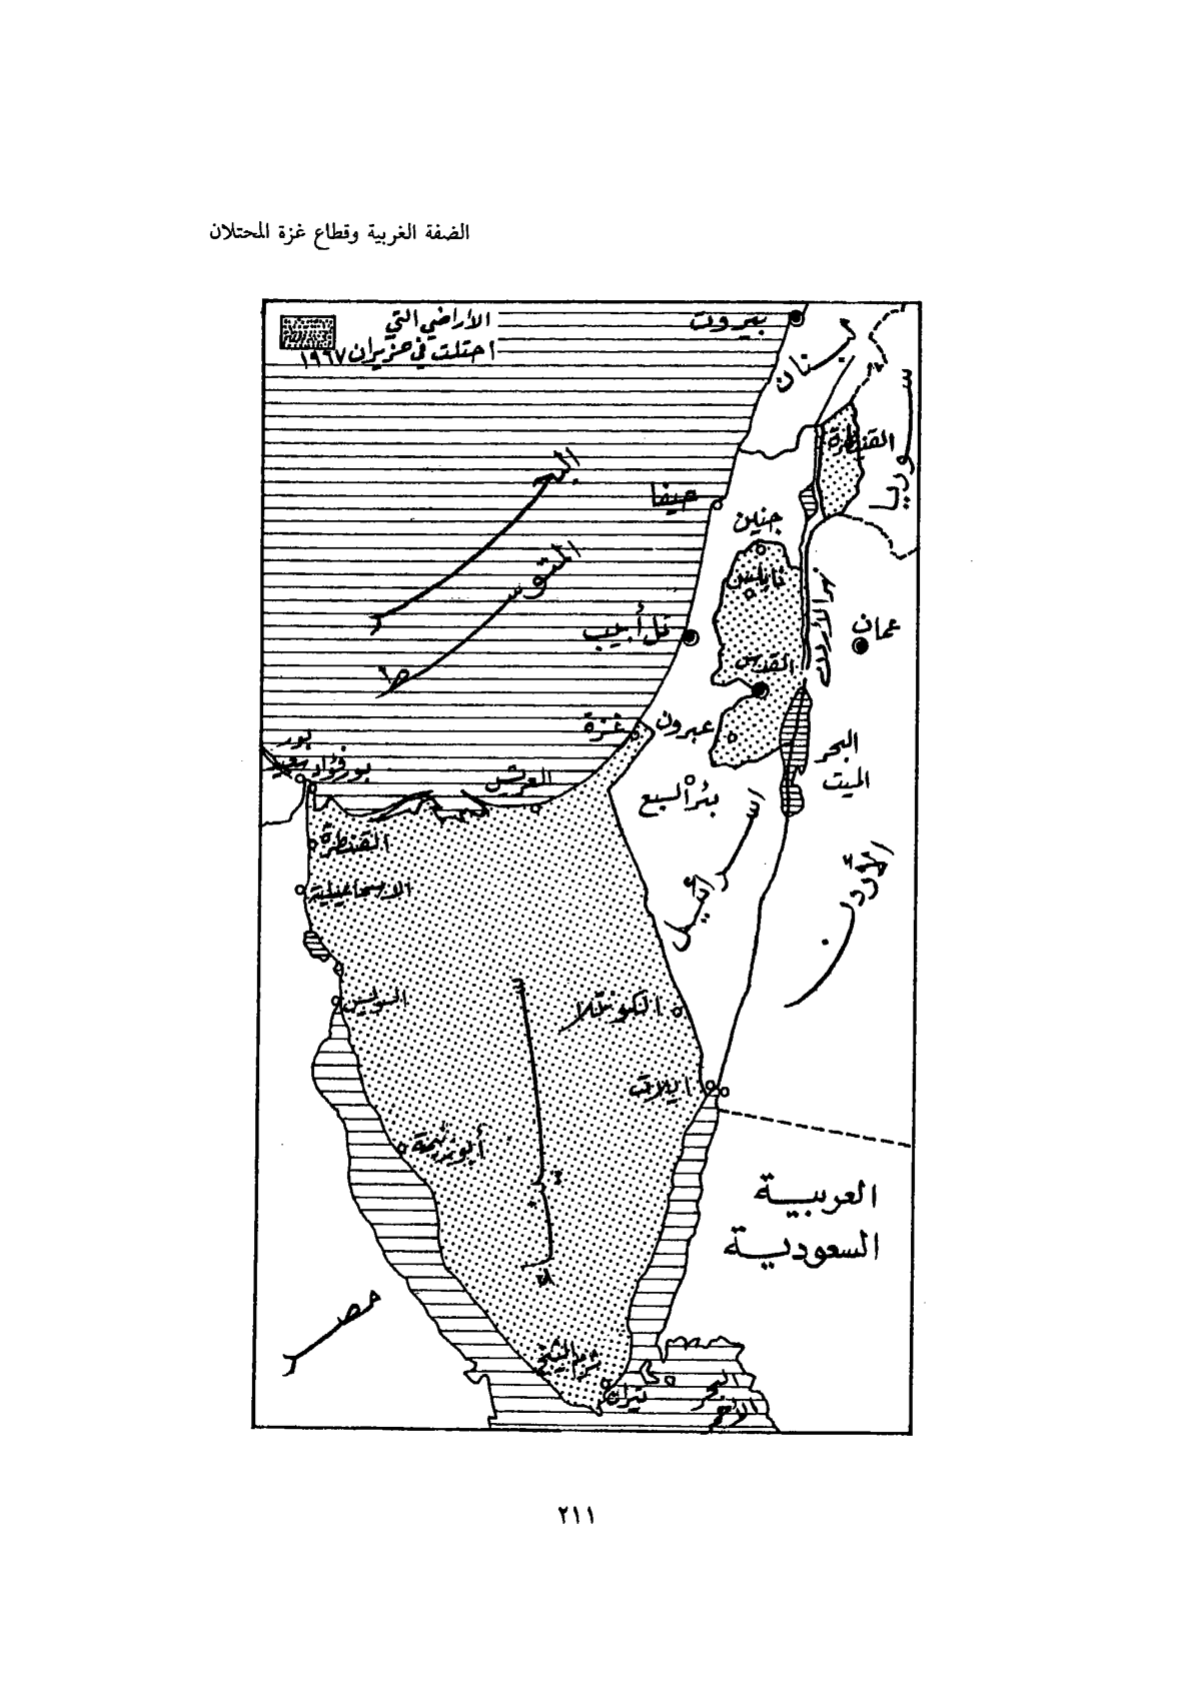 الضفة الغربية وقطاع غزة المحتلان
الأراضي التي
احتلت في حزيران ١٩٦٧
بيروت
لبنان
سوريا
القنطرة
البحر
المتوسط
حيفا
جنين
نابلس
نهر الأردن
عمان
تل أبيب
القدس
غزة
عبرون
البحر
الميت
بور
سعيد
بور فؤاد
العريش
بئر السبع
اسرائيل
الأردن
القنطرة
الاسماعيلية
السويس
سيناء
الكونتلا
ايلات
أبو زنيمة
العربية
السعودية
مصر
شرم الشيخ
تيران
البحر
الاحمر
٢١١